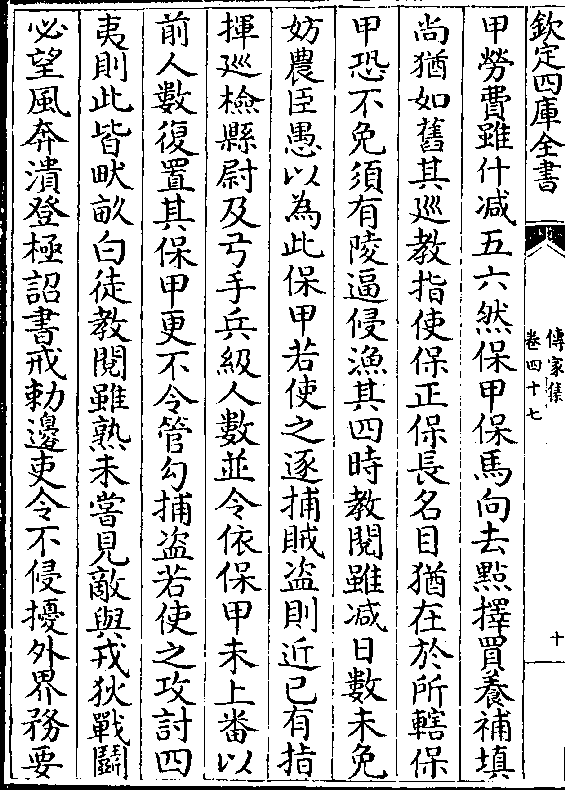 欽定四庫全書
傳家集
卷四十七
十
甲勞費雖什减五六然保甲保馬向去㸃擇買養補填
尚猶如舊其廵教指使保正保長名目猶在於所轄保
甲恐不免須有陵逼侵漁其四時教閱雖减日數未免
妨農臣愚以為此保甲若使之逐捕賊盜則近已有指
揮廵檢縣尉及弓手兵級人數並令依保甲未上番以
前人數復置其保甲更不令管勾捕盜若使之攻討四
夷則此皆畎畝白徒教閱雖熟未嘗見敵與戎狄戰鬬
必望風奔潰登極詔書戒勅邊吏令不侵擾外界務要